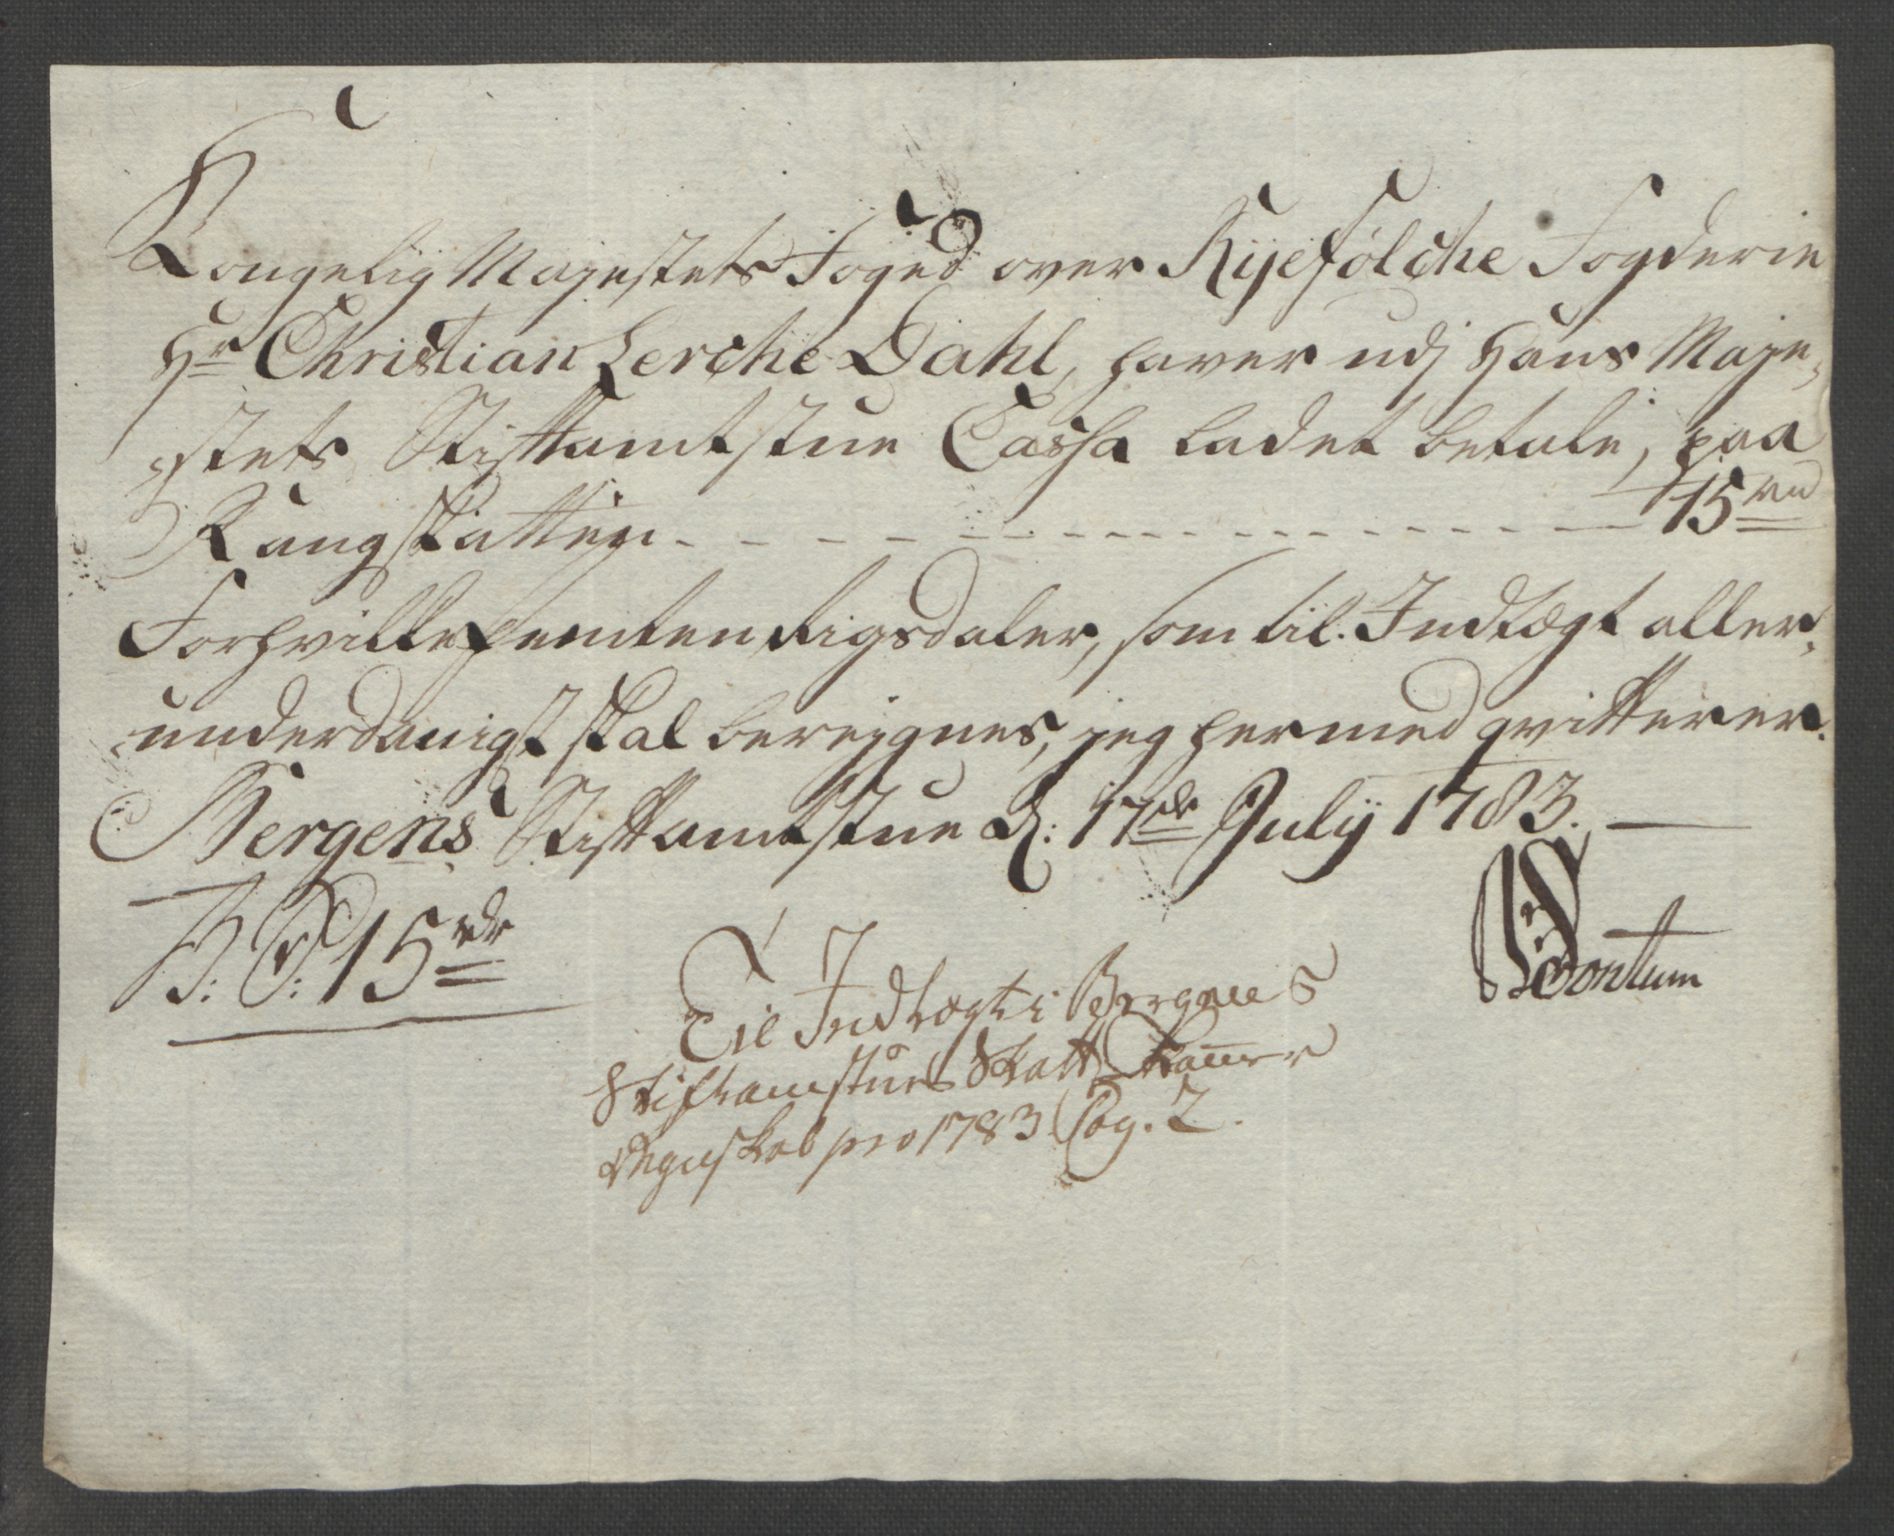 Kongelig Majestets Foged over Ryefølche Fogderie
Hr Christian Lerche Dahl, haver udj Hans Maje-
stets Stiftamtstue Cassa ladet betale, paa
Rangskatten - - - - - - - - - - - - - - - 15 rd
Forhvilke femten Rigsdaler, som til Indtægt aller-
underdanigst skal beregnes, jeg hermed qvitterer.
Bergens Stiftamtstue d: 17de Julij 1783.
15 rdr
Til Indtægt i Bergens
Stiftamstues Skatt
Regnskab pro 1783 Pag. 2.